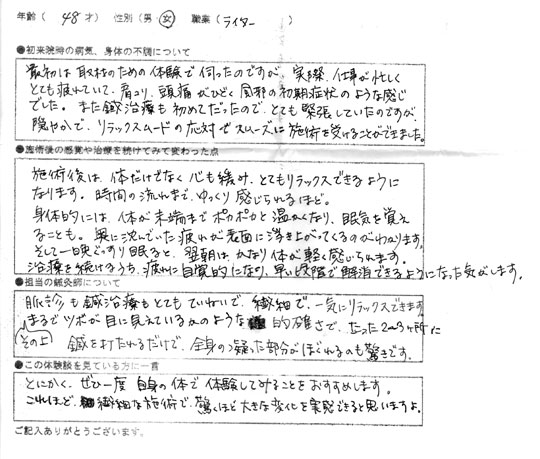 年齢( 48 才) 性別(男・女) 職業(ライター )
●初来院時の病気、身体の不調について
最初は取材のための体験で伺ったのですが、実際、仕事が忙しく
とても疲れていて、肩コリ、頭痛がひどく風邪の初期症状のような感じ
でした。また鍼治療も初めてだったので、とても緊張していたのですが、
穏やかで、リラックスムードの応対でスムーズに施術を受けることができました。
●施術後の感覚や治療を続けてみて変わった点
施術後は、体だけでなく心も緩み、とてもリラックスできるように
なります。時間の流れまで、ゆっくり感じられるほど。
身体的には、体が末端までポカポカと温かくなり、眠気を覚え
ることも。奥に沈んでいた疲れが表面に浮き上がってくるのがわかります。
そして一晩ぐっすり眠ると、翌朝は、かなり体が軽く感じられます。
治療を続けるうち、疲れに自覚的になり、早い段階で解消できるようになった気がします。
●担当の鍼灸師について
脈診も鍼治療もとてもていねいで、繊細で、一気にリラックスできます
まるでツボが目に見えているかのような的確さで、たった2〜3ヶ所に
その上 鍼を打たれるだけで、全身の凝った部分がほぐれるのも驚きです。
●この体験談を見ている方に一言
とにかく、ぜひ一度自身の体で体験してみることをおすすめします。
これほど、繊細な施術で、驚くほど大きな変化を実感できると思いますよ。
ご記入ありがとうございます。